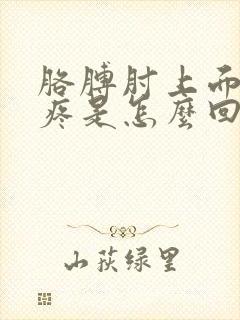 胳膊肘上而
疼是怎麼回
山荻绿里